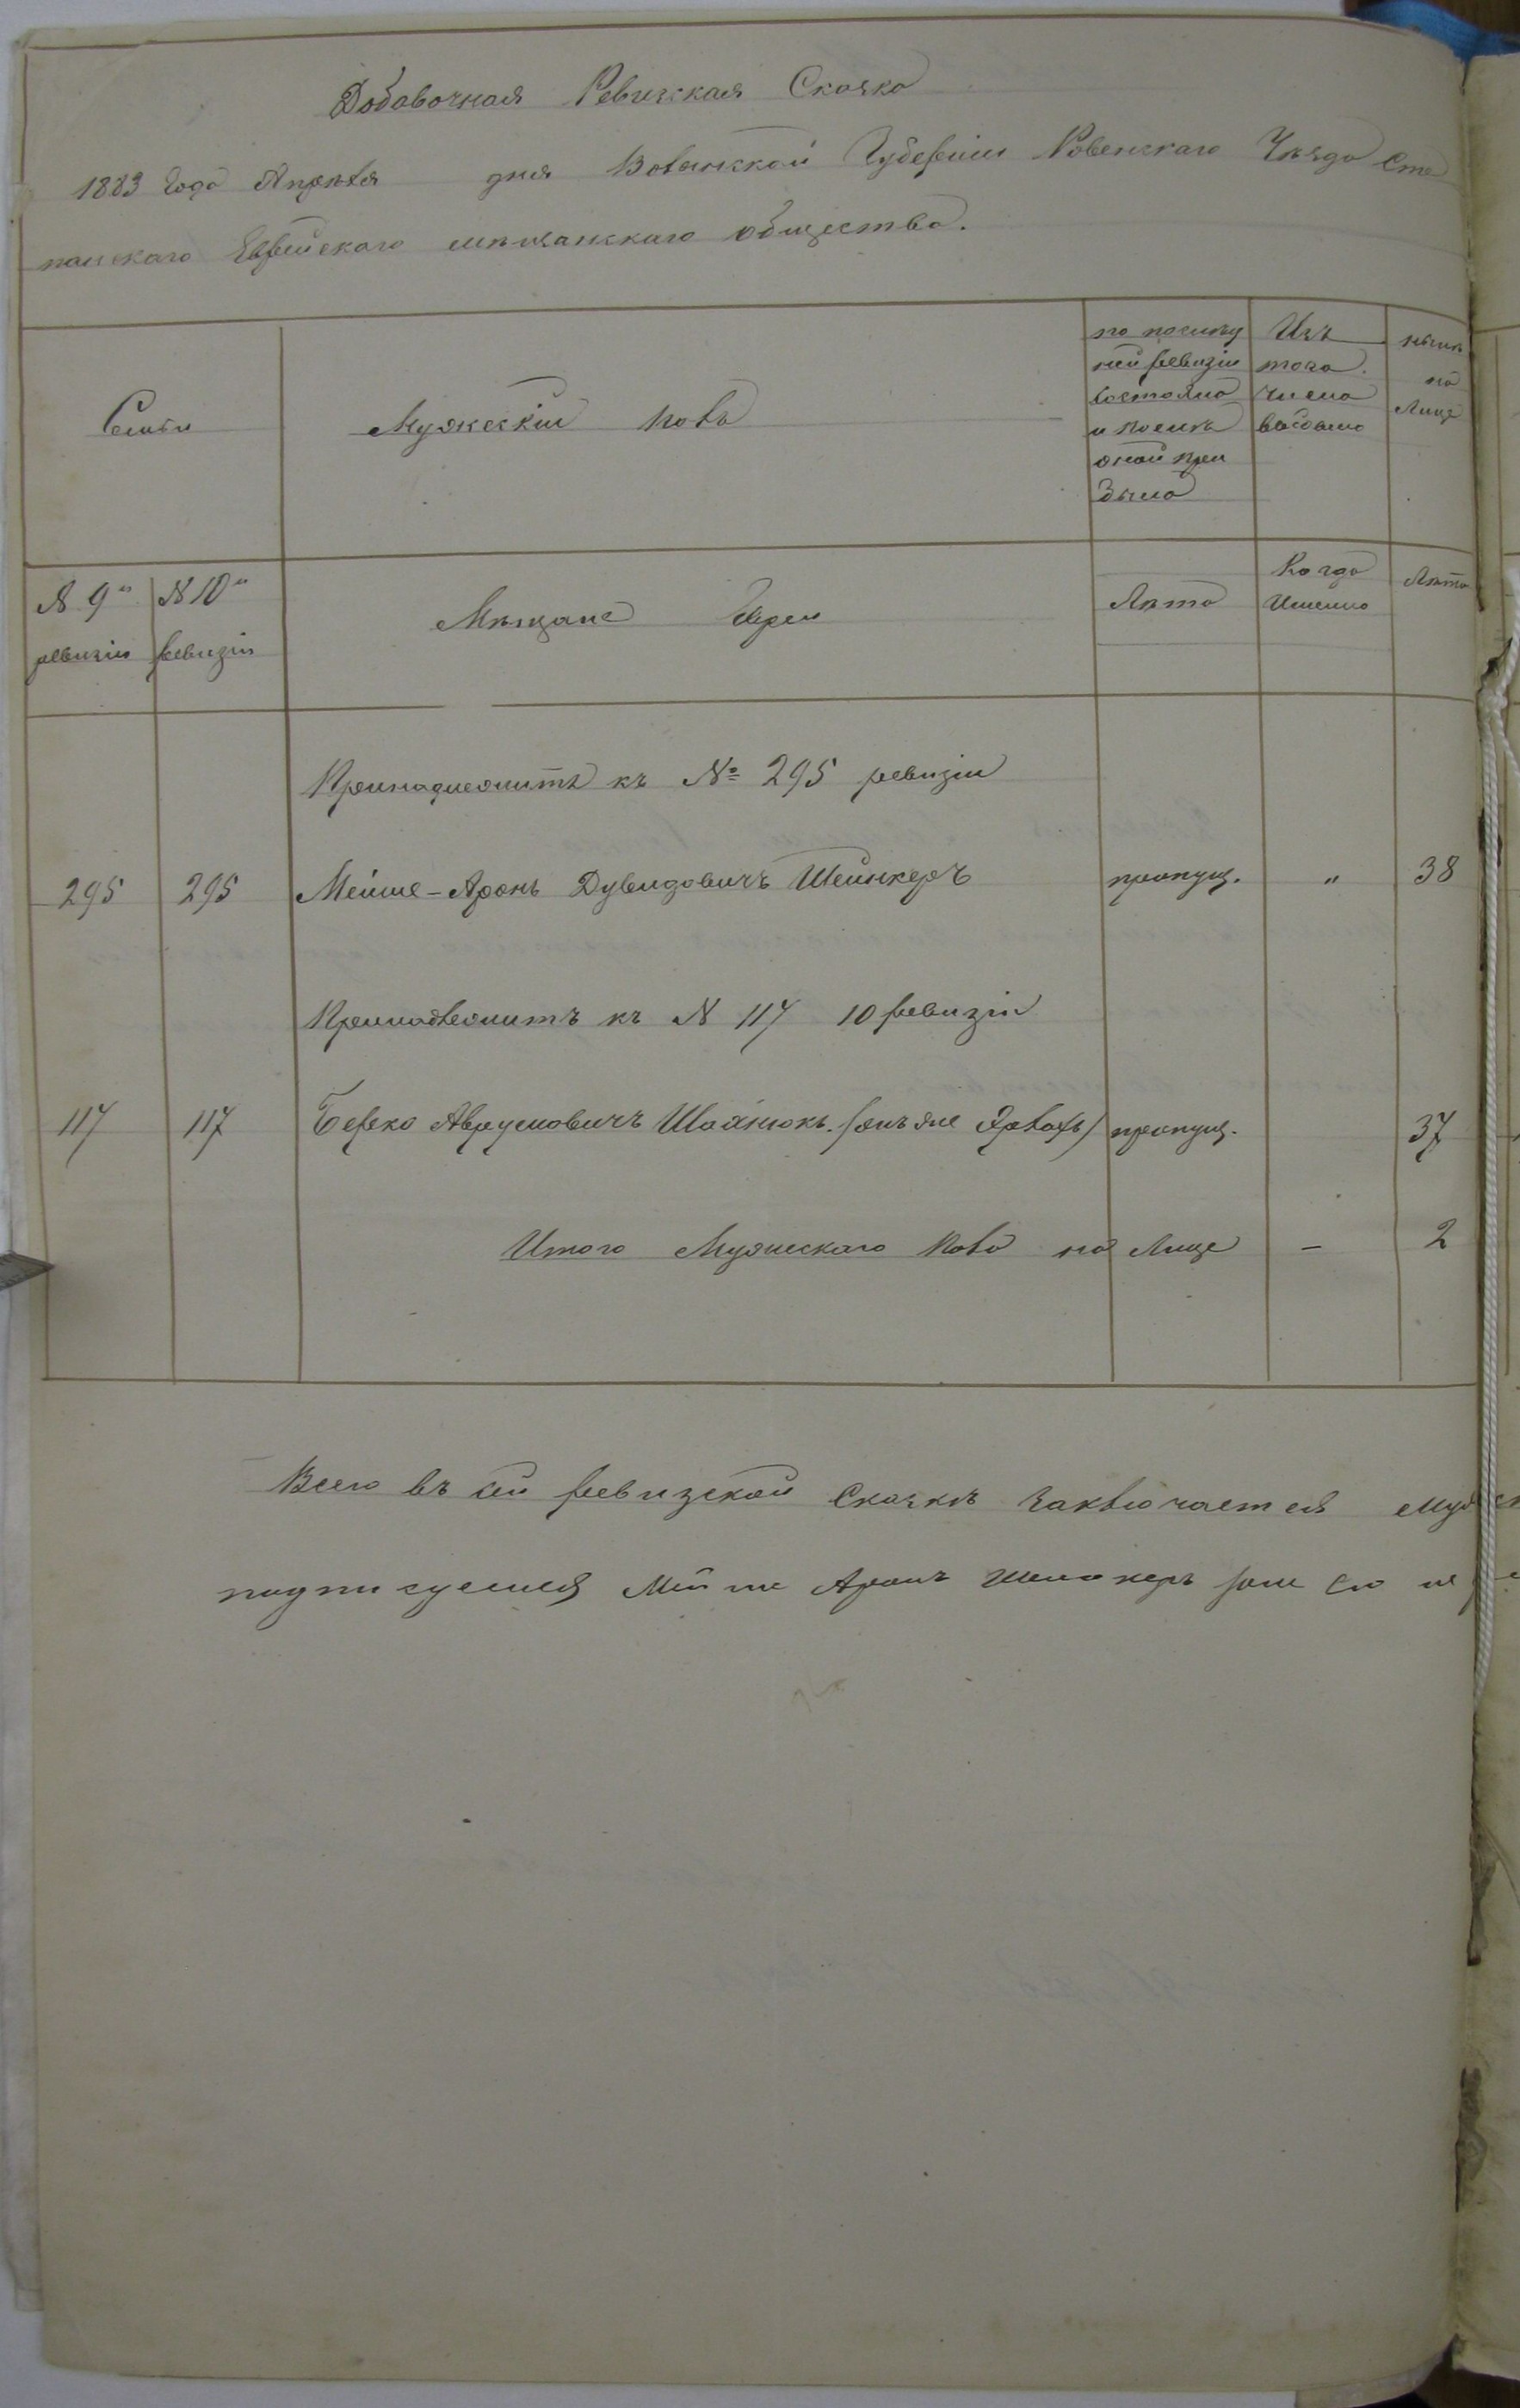 Добавочная Ревизская Сказка
1883 Года Апрѣля дня Волынской Губерніи Ровенскаго Уѣзда Сте
панскаго Еврейскаго мѣщанскаго общества.
Семьи
Мужескій полъ
по послѣд
ней ревизіи
состояло
и послѣ
оной при
было
Изъ
того
числа
выбыло
нынѣ
на
Лице
№ 9й
ревизіи
№ 10й
ревизіи
Мѣщане Евреи
Лѣта
Когда
Именно
Лѣта
Принадлежитъ къ № 295 ревизіи
295 295 Мейше-Аронъ Дувидовичъ Шейнкеръ пропущ. " 38
Принадлежитъ къ № 117 10 ревизіи
117 117 Берко Аврумовичъ Шайнюкъ (онъ же) пропущ. 37
Итого Мужескаго Пола на Лице – 2
Всего въ сей ревизской Сказкѣ заключается муж
подписуемся Мейше Аронъ